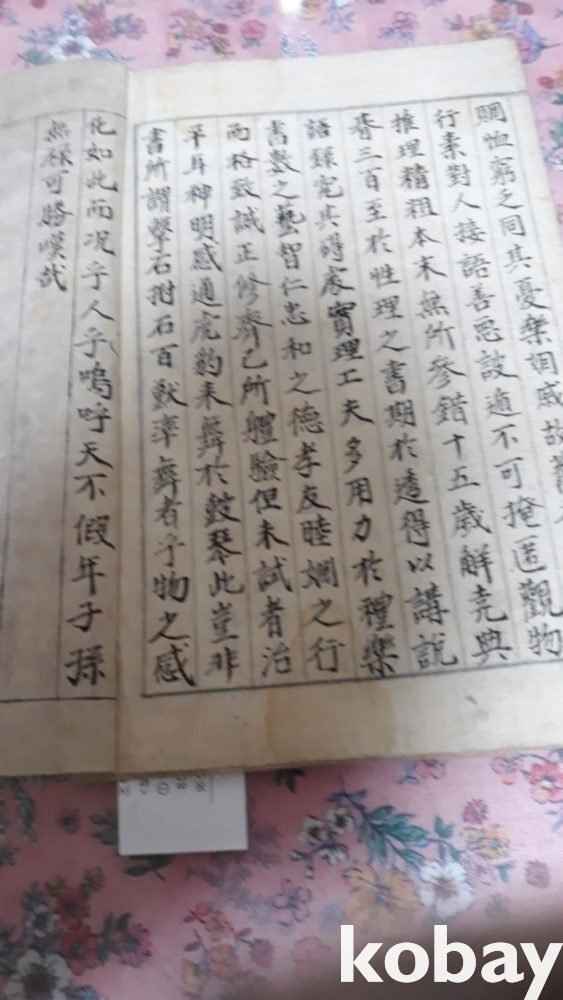 賙恤窮乏同其憂樂姻戚故舊
行素對人接語善惡詖遁不可掩匿觀物
推理精粗本末無所參錯十五歲解堯典
朞三百至於性理之書期於透得以講說
語錄究其碍處實理工夫多用力於禮樂
書數之藝智仁忠和之德孝友睦婣之行
而格致誠正修齊已所軆驗但未試者治
平耳神明感通虎豹来舞於鼓琴此豈非
書所謂擊石拊石百獸率舞者乎物之感
化如此而况乎人乎嗚呼天不假年子孫
無祿可勝嘆哉
kobay